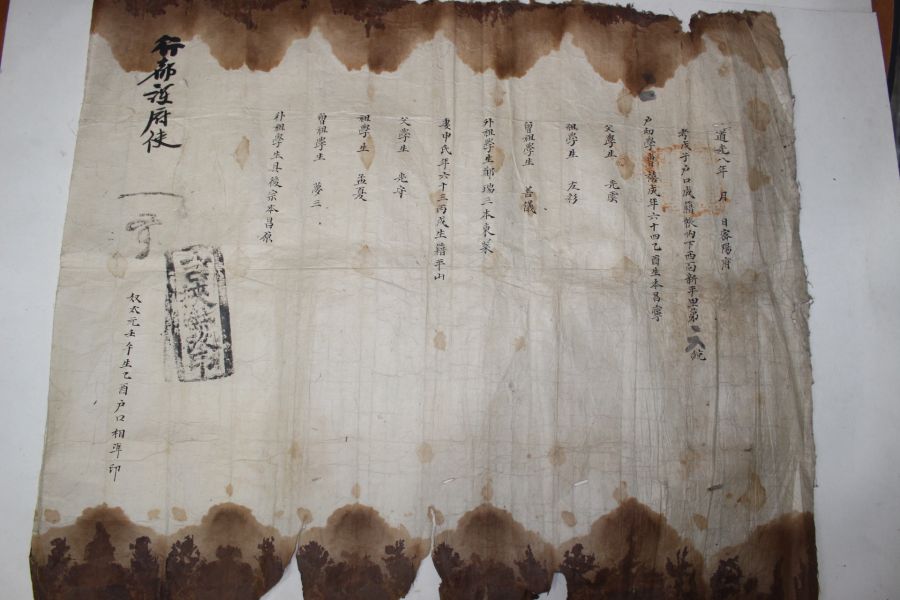 道光八年 月 日密陽府
考戊子戶口成籍帳內下西面新平里第 統
戶幼學曺 年六十四乙酉生本昌寧
父學生 光
祖學生 友彩
曾祖學生 善儀
外祖學生鄭瑞三本東萊
妻申氏年六十三丙戌生籍平山
父學生 光守
祖學生 孟夏
曾祖學生 夢三
外祖學生具俊宗本昌原
行都護府使
奴 元壬午生乙酉戶口相準印